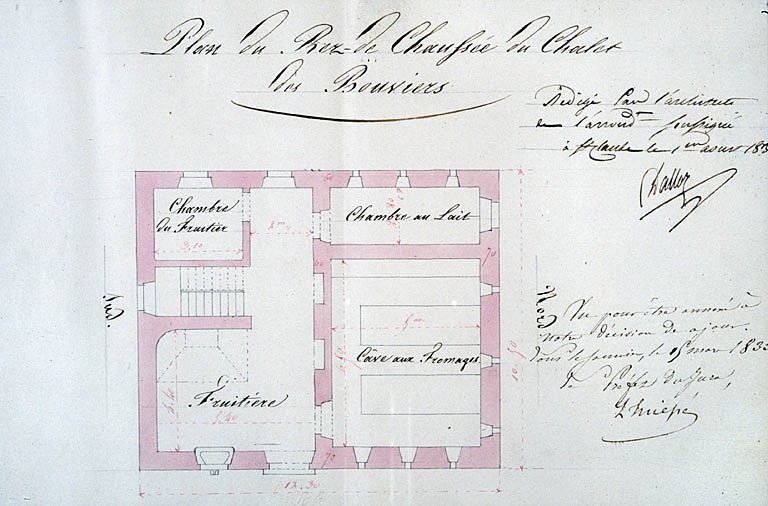 Plan du Rez-de Chaussée du Chalet
des Bouviers
Rédigé par l'architecte
de l'arrond.t soussigné
à St Claude le 1er avril 183
Dalloz
Chambre
du Fruitier
3,10
2m
Chambre au Lait
70
Sud.
Nord
5m
Câve aux Fromages
Fruitière
5,40
70
10,50
12,30
Vu pour être annexé à
notre décision de ce jour.
Lons le Saunier, le 15 mar 183
Le Préfet du Jura,